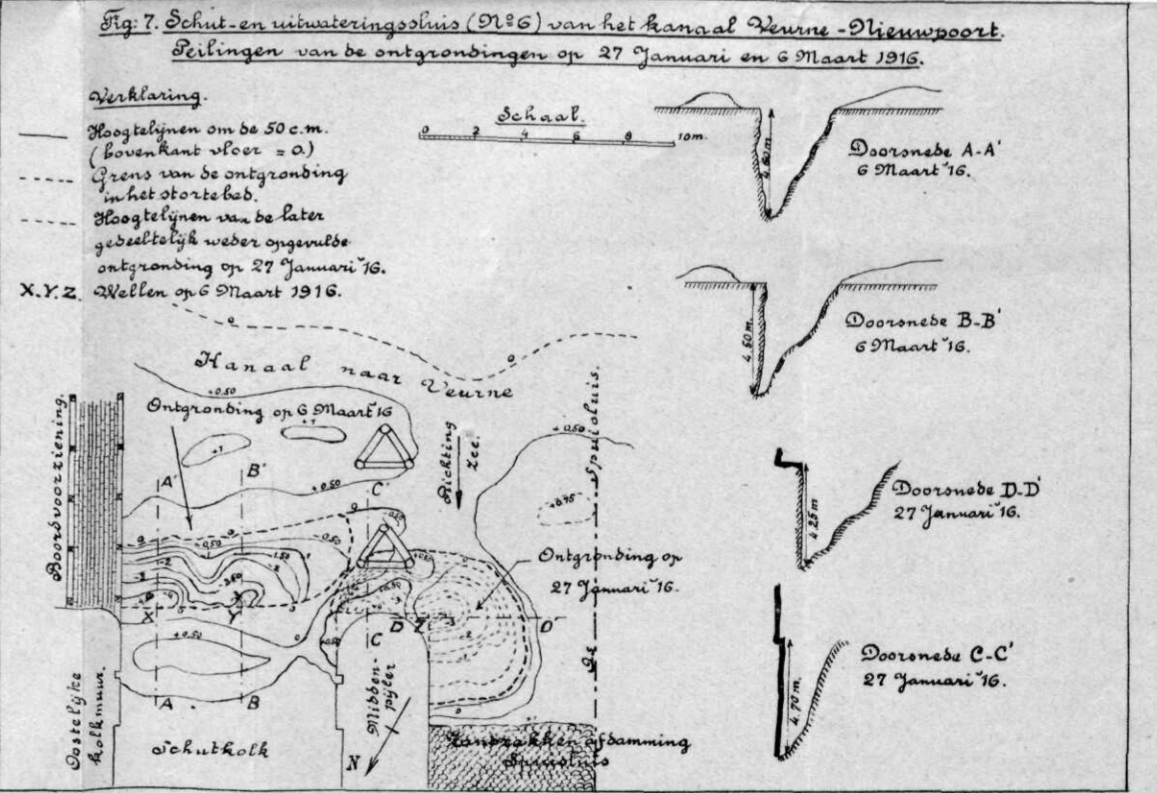 Fig: 7. Schut- en uitwateringssluis (No 6) van het kanaal Veurne - Nieuwpoort.
Peilingen van de ontgrondingen op 27 Januari en 6 Maart 1916.
Verklaring.
Hoogtelijnen om de 50 c.m.
(bovenkant vloer = 0.)
Grens van de ontgronding
in het stortebed.
Hoogtelijnen van de later
gedeeltelijk weder opgevulde
ontgronding op 27 Januari '16.
X.Y.Z. Wellen op 6 Maart 1916.
Schaal.
0 2 4 6 8 10 m.
4.60 m.
Doorsnede A-A'
6 Maart '16.
4.50 m.
Doorsnede B-B'
6 Maart '16.
4.25 m
Doorsnede D-D'
27 Januari '16.
4.70 m.
Doorsnede C-C'
27 Januari '16.
0
0
Kanaal naar Veurne
+0.50
Ontgronding op 6 Maart '16
+1
+1
Boordvoorziening.
Richting
Zee.
+0.50
Spuisluis.
A'
B'
C'
+0.50
+0.95
Ontgronding op
27 Januari '16.
X
Y
D
Z
D'
C
+0.50
A
B
Oostelijke
kolkmuur.
Schutkolk
Midden-
pijler
N
Zandzakken afdamming
Spuisluis